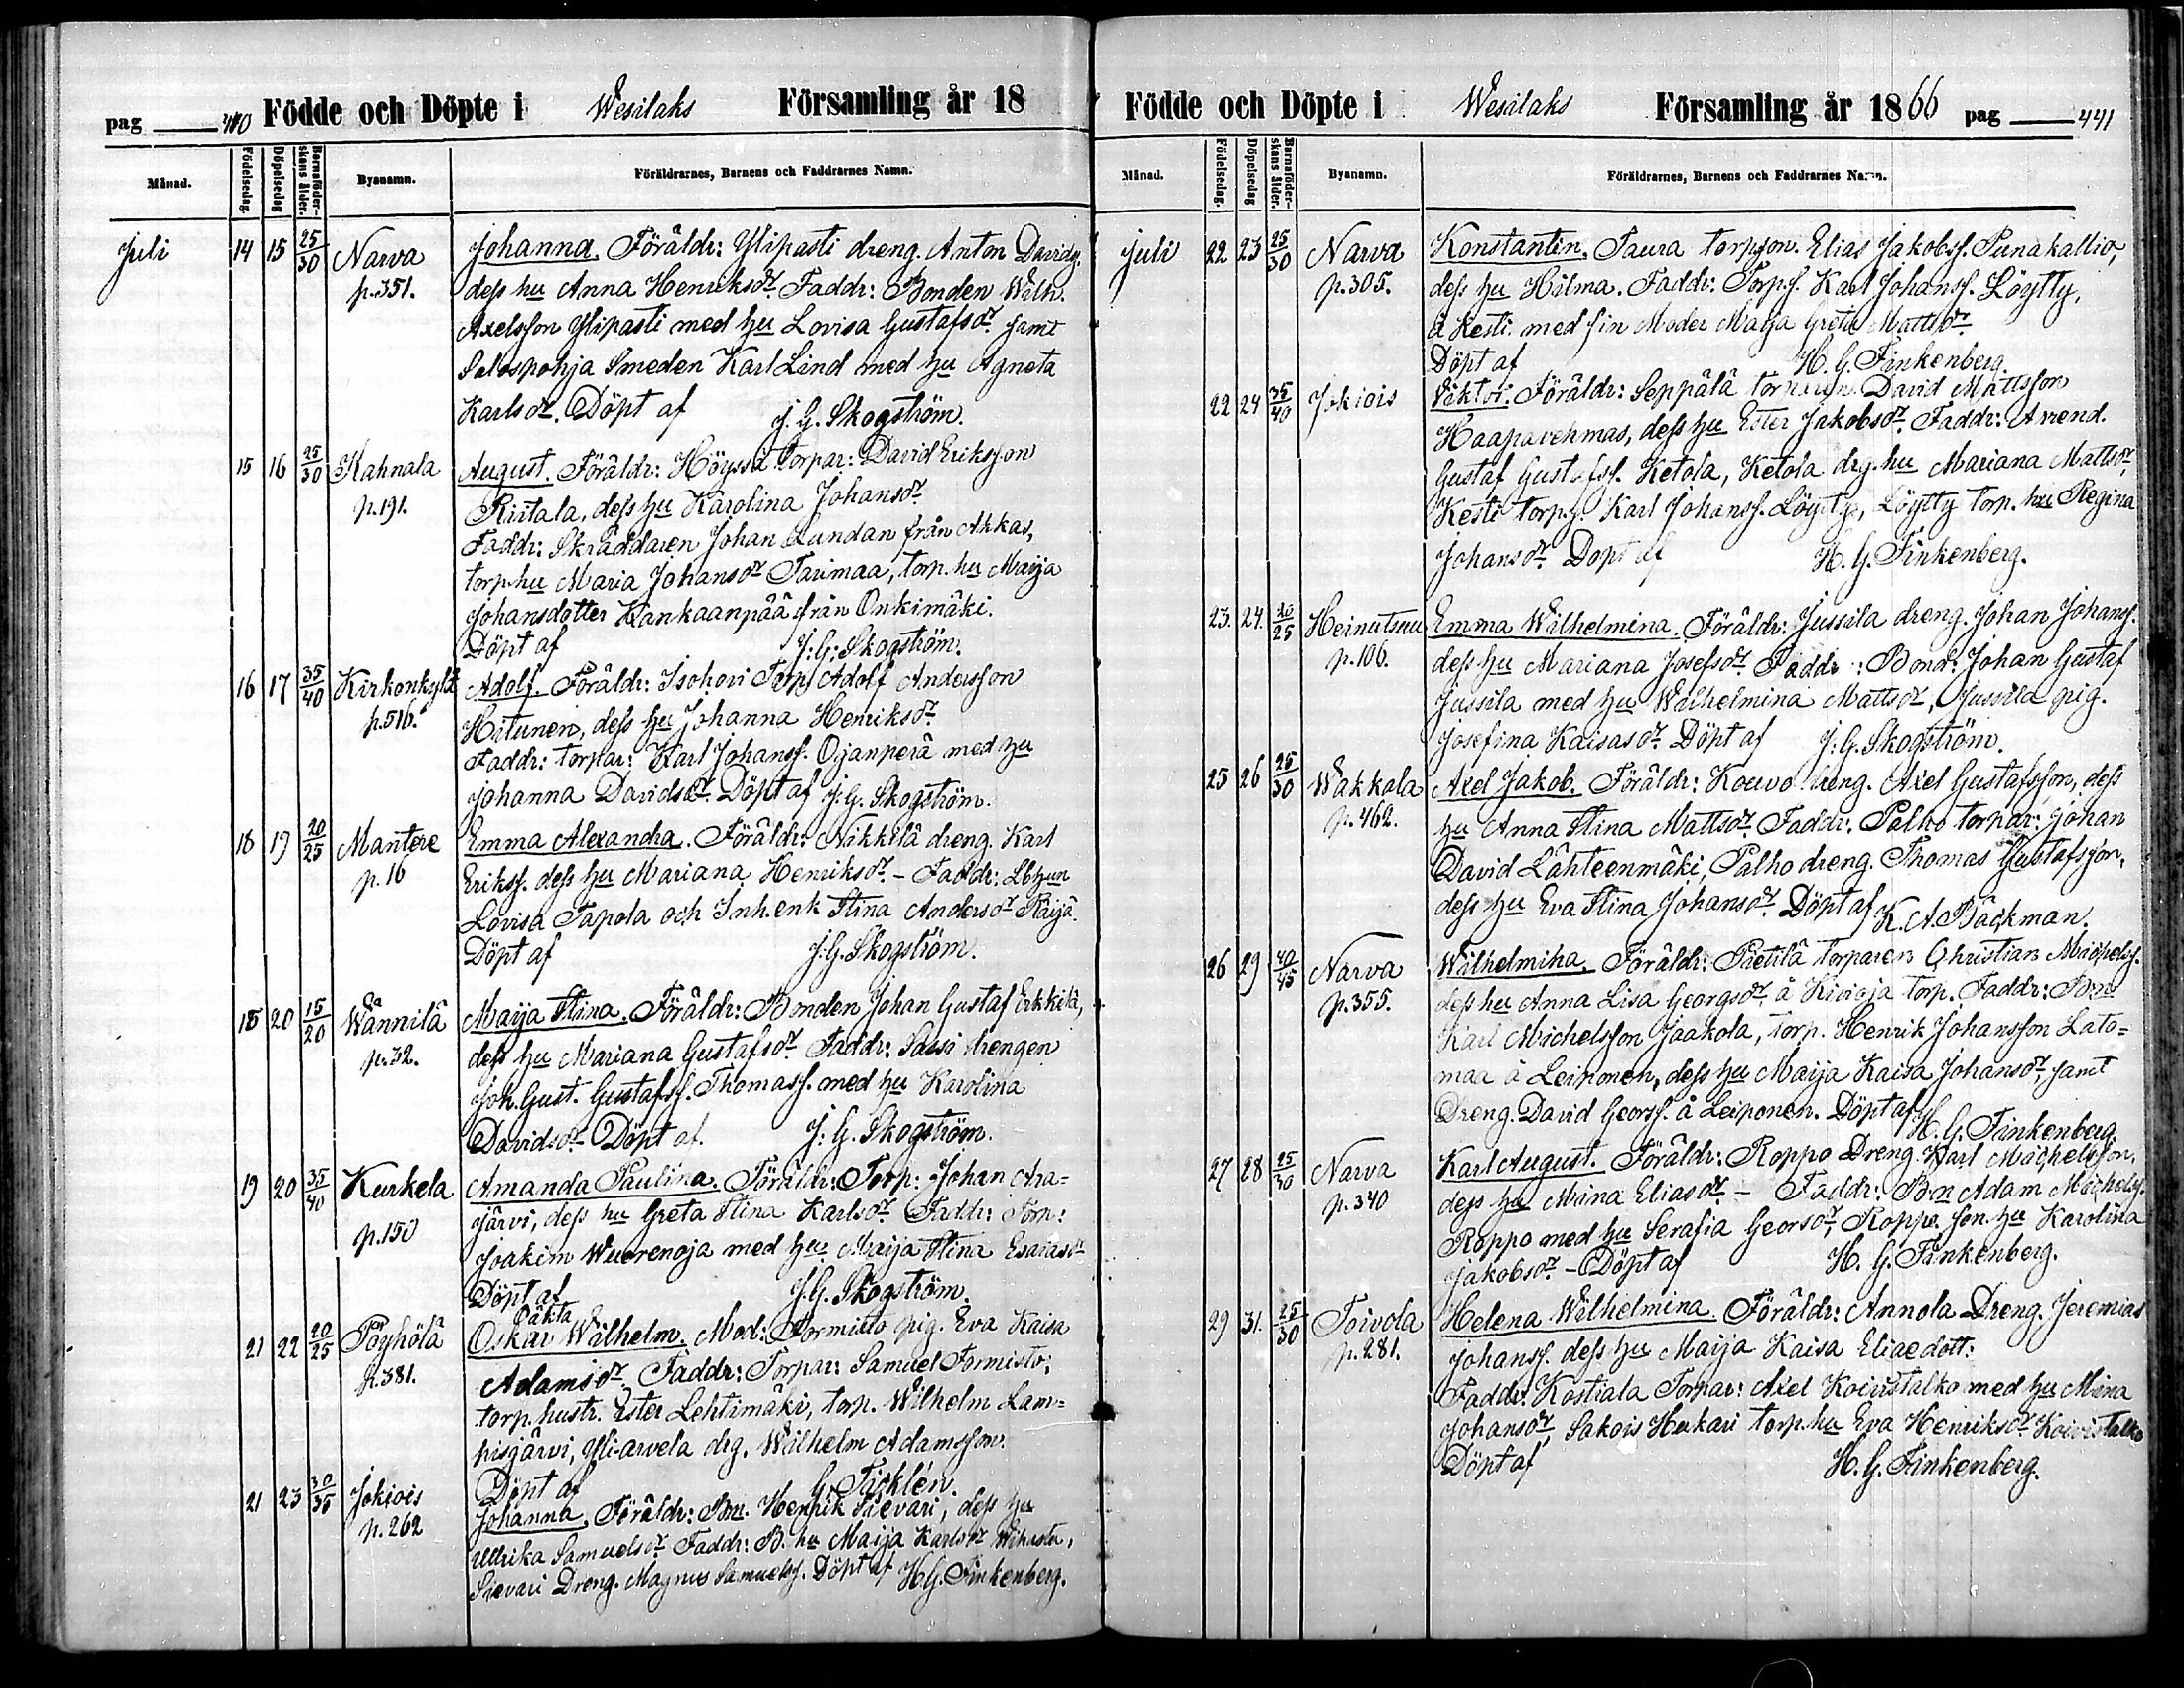 pag 440 Födde och Döpte i Wesilaks Församling år 18
Månad. Födelsedag. Döpelsedag Barnaföder-skans ålder. Byanamn. Föräldrarnes, Barnens och Faddrarnes Namn.
Juli 14 15 25/30 Narva Johanna. Föräldr: Ylipasti dreng. Anton Davidsf.
p. 351. dess hu Anna Henriksdr. Faddr: Bonden Wilh.
Axelsson Ylipasti med hu Lovisa Gustafsdr samt
Salospohja Smeden Karl Lind med hu Agneta
Karlsdr. Döpt af J. G. Skogström.
15 16 25/30 Kahnala August. Föräldr: Höyssä Torpar: David Eriksson
p. 191. Ristala, dess hu Karolina Johansdr.
Faddr: Skräddaren Johan Lundan från Akkas,
torp. hu Maria Johansdr Tarimaa, torp. hu Maija
Johansdotter Kankaanpää från Onkimäki.
Döpt af J: G: Skogström.
16 17 35/40 Kirkonkylä Adolf. Föräldr: Isohovi Torp. Adolf Andersson
p. 516. Hitunen, dess hu Johanna Henriksdr.
Faddr: torpar: Karl Johanss. Ojanperä med hu
Johanna Davidsdr. Döpt af J. G. Skogström.
18 19 20/25 Mantere Emma Alexandra. Föräldr: Nikkilä dreng. Karl
p. 16 Erikss. dess hu Mariana Henriksdr. - Faddr:
Lovisa Tapola och Inh. enk Stina Andersdr Räijä.
Döpt af J. G. Skogström.
18 20 15/20 Wännilä Maija Stina. Föräldr: Bonden Johan Gustaf Erkkilä,
p. 32. dess hu Mariana Gustafsdr. Faddr: Sassi drengen
Joh. Gust. Gustafss. Thomass. med hu Karolina
Davidsdr. Döpt af. J: G. Skogström.
19 20 35/40 Kurkela Amanda Paulina. Föräldr: Torp: Johan Ara=
p. 150 järvi, dess hu Greta Stina Karlsdr. Faddr: Torp:
Joakim Wuorenoja med hu Maija Stina Esaiasdr
Döpt af J. G. Skogström.
Oäkta
21 22 20/25 Pöyhölä Oskar Wilhelm. Mod: Tormisto pig. Eva Kaisa
p. 381. Adamsdr. Faddr: Torpar: Samuel Tormisto;
torp. hustr. Ester Lehtimäki, torp. Wilhelm Lam=
pisjärvi, Yli-arvela drg. Wilhelm Adamsson.
Döpt af G. Täcklén.
21 23 30/35 Jokiois Johanna. Föräldr: Bon. Henrik Sievari, dess hu
p. 262 Ulrika Samuelsdr Faddr: B. hu Maija Karlsdr
Sievari Dreng. Magnus Samuelss. Döpt af H. G. Finkenberg.
Födde och Döpte i Wesilaks Församling år 1866 pag 441
Månad. Födelsedag. Döpelsedag Barnaföder-skans ålder. Byanamn. Föräldrarnes, Barnens och Faddrarnes Namn.
Juli 22 23 25/30 Narva Konstantin. Taura torpson. Elias Jakobss. Punakallio,
p. 305. dess hu Hilma. Faddr: Torps. Karl Johanss. Löytty,
à Kesti. med sin Moder Maja Greta Mattsdr.
Döpt af H. G. Finkenberg.
22 24 35/40 Jokiois Viktor. Föräldr: Seppälä torparen. David Mattsson
Haapavehmas, dess hu Ester Jakobsdr. Faddr: Arrend.
Gustaf Gustafss. Ketola, Ketola drg. hu Mariana Mattsdr,
Kesti torp. Karl Johanss. Löytty, Löytty torp. hu Regina
Johansdr. Döpt af H. G. Finkenberg.
23. 24. 20/25 Heinutsuu Emma Wilhelmina. Föräldr: Jussila dreng. Johan Johanss.
p. 106. dess hu Mariana Josefsdr. Faddr: Bond: Johan Gustaf
Jussila med hu Wilhelmina Mattsdr, Jussila pig.
Josefina Kaisasdr. Döpt af J: G. Skogström.
25 26 25/30 Wakkala Axel Jakob. Föräldr: Kouvo dreng. Axel Gustafsson, dess
p. 462. hu Anna Stina Mattsdr. Faddr: Palho torpar: Johan
David Lähteenmäki, Palho dreng. Thomas Gustafsson,
dess hu Eva Stina Johansdr. Döpt af K. A. Bäckman.
26 29 40/45 Narva Wilhelmina. Föräldr: Pietilä torparen Christian Michelss.
p. 355. dess hu Anna Lisa Georgsdr, à Kivioja torp. Faddr: Bon
Karl Michelsson Jaakola, torp. Henrik Johansson Lato=
maa à Leinonen, dess hu Maija Kaisa Johansdr, samt
Dreng. David Georgs. à Leiponen. Döpt af H. G. Finkenberg.
27 28 25/30 Narva Karl August. Föräldr: Roppo Dreng. Karl Michelsson,
p. 340 dess hu Miina Eliasdr. - Faddr: B:n Adam Michelss.
Roppo med hu Serafia Georsdr, Roppo son. hu Karolina
Jakobsdr. - Döpt af H. G. Finkenberg.
29 31. 25/30 Toivola Helena Wilhelmina. Föräldr: Annola Dreng. Jeremias
p. 281. Johanss. dess hu Maija Kaisa Eliaedott:
Faddr: Kostiala Torpar: Axel Koivistalko med hu Miina
Johansdr, Sakois Hukari torp. hu Eva Henriksdr Koivistalko
Döpt af H. G. Finkenberg.